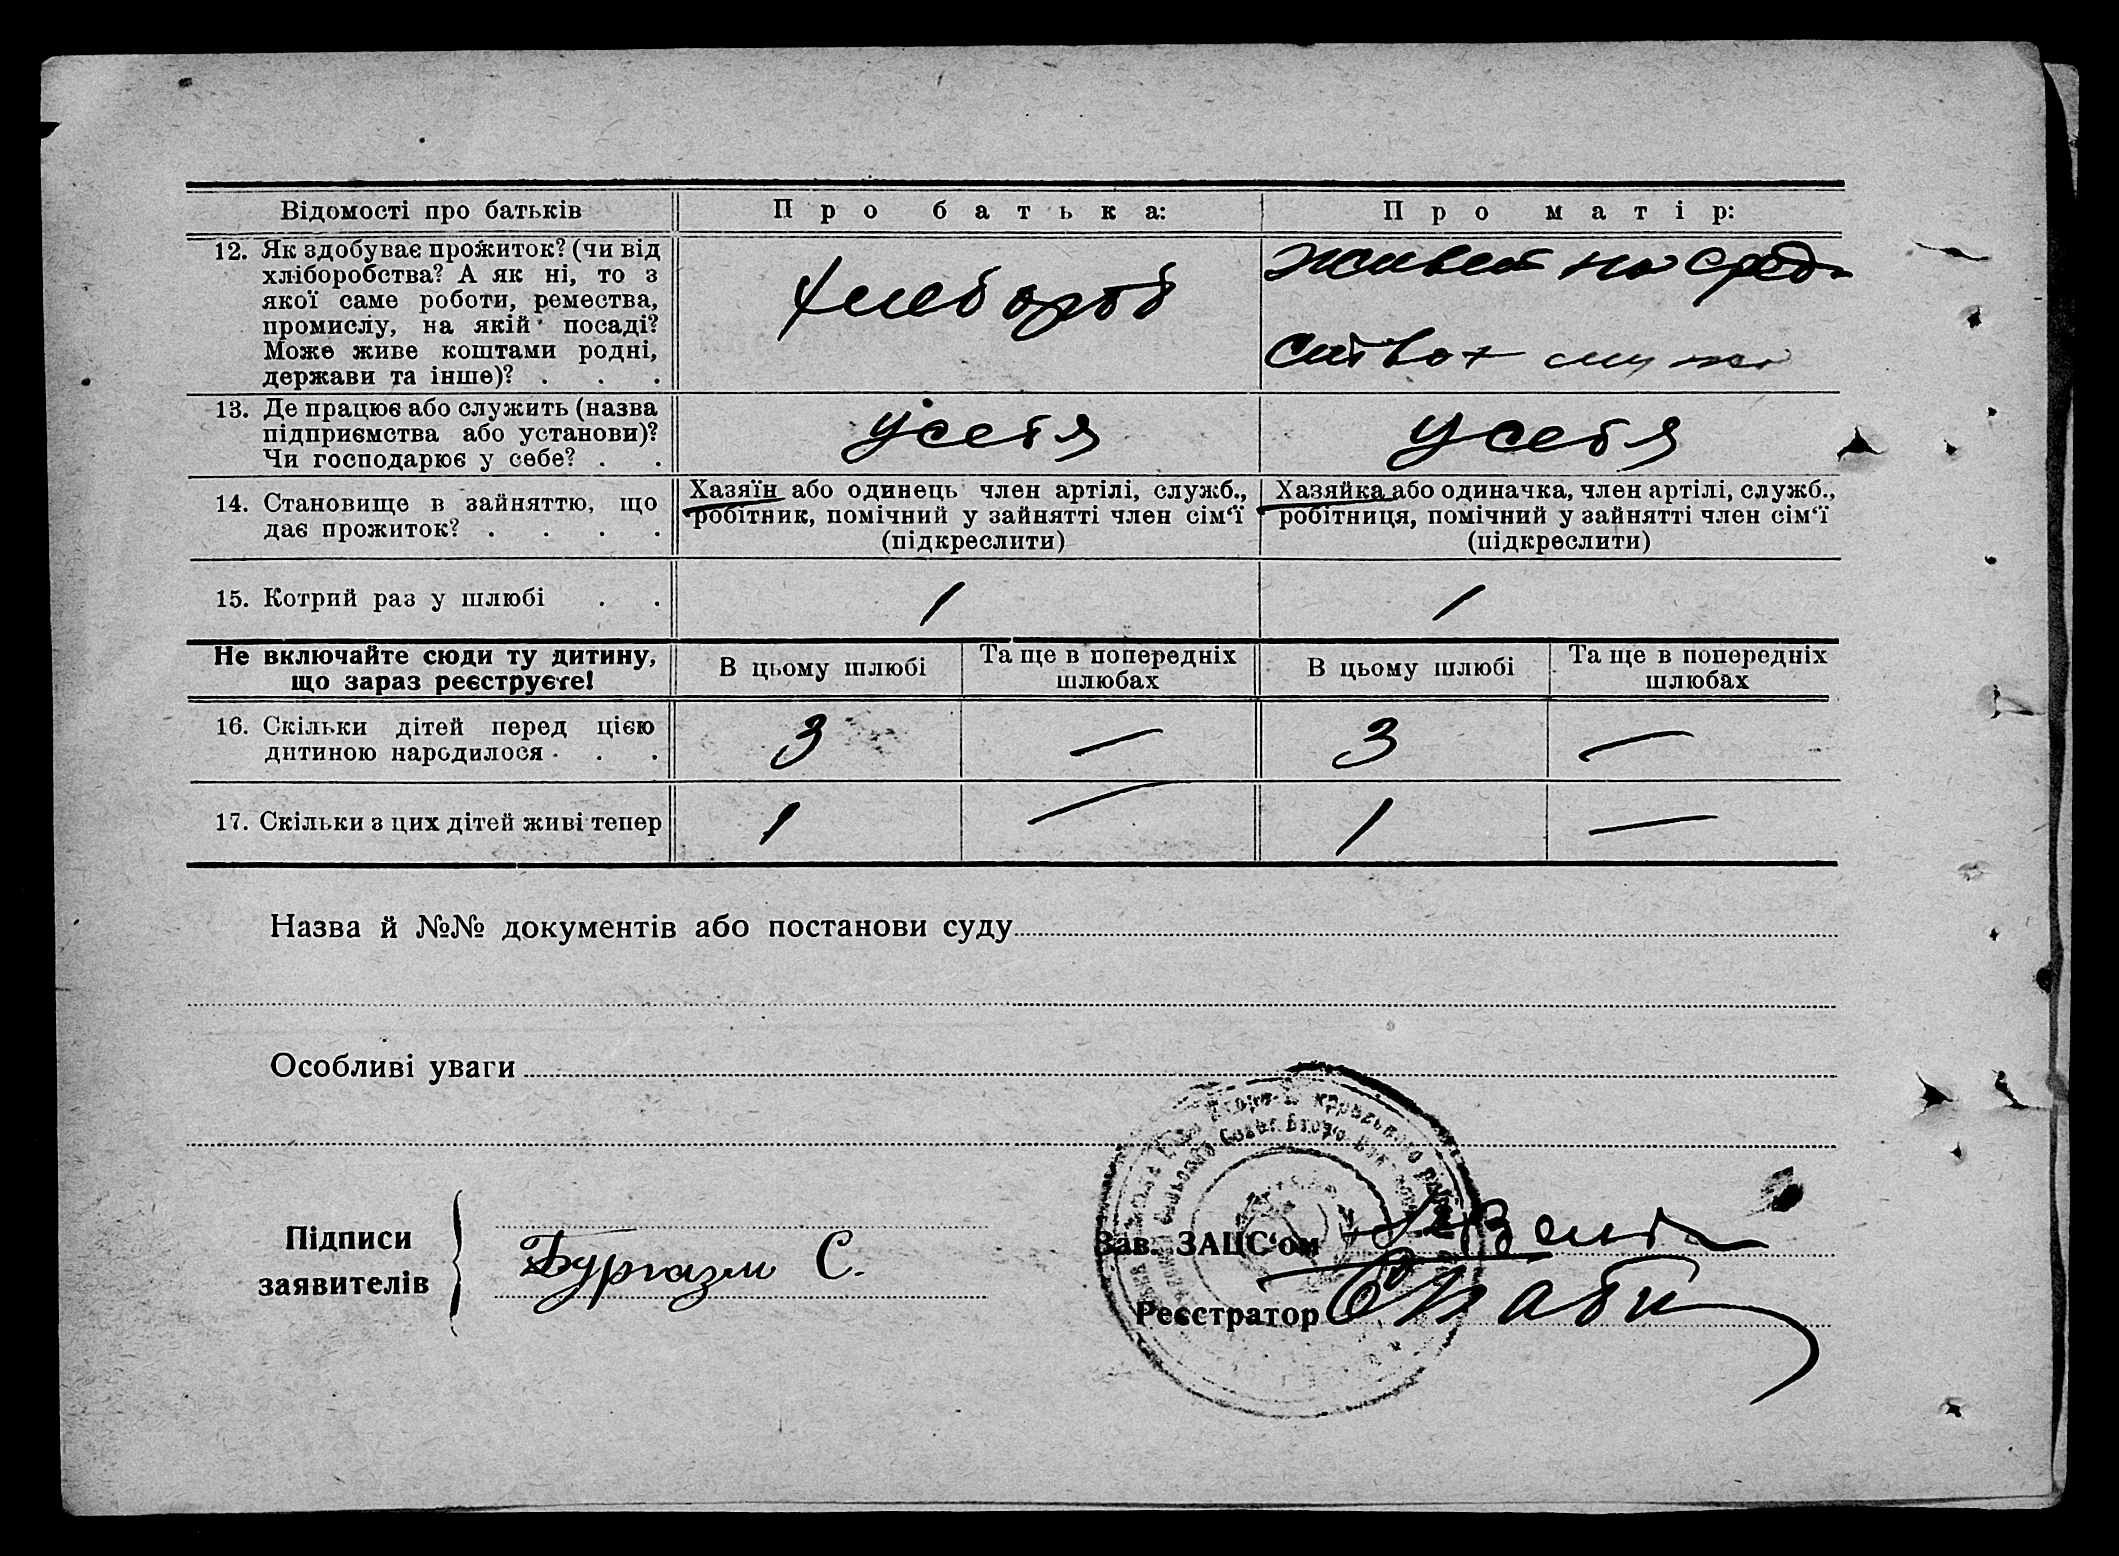 Відомості про батьків
Про батька:
Про матір:
12. Як здобуває прожиток? (чи від
хліборобства? А як ні, то з
якої саме роботи, ремества,
промислу, на якій посаді?
Може живе коштами родні,
держави та інше)? . . .
хлебороб
живет на сред-
ствах мужа
13. Де працює або служить (назва
підприємства або установи)?
Чи господарює у себе? . .
у себя
у себя
14. Становище в зайняттю, що
дає прожиток? . . . .
Хазяїн або одинець член артілі, служб.,
робітник, помічний у зайнятті член сім‘ї
(підкреслити)
Хазяйка або одиначка, член артілі, служб.,
робітниця, помічний у зайнятті член сім‘ї
(підкреслити)
15. Котрий раз у шлюбі . .
1
1
Не включайте сюди ту дитину,
що зараз реєструєте!
В цьому шлюбі
Та ще в попередніх
шлюбах
В цьому шлюбі
Та ще в попередніх
шлюбах
16. Скільки дітей перед цією
дитиною народилося . . .
3
—
3
—
17. Скільки з цих дітей живі тепер
1
—
1
—
Назва й №№ документів або постанови суду
Особливі уваги
Підписи
заявителів
Бургазли С.
Зав. ЗАЦС‘ом
Реєстратор